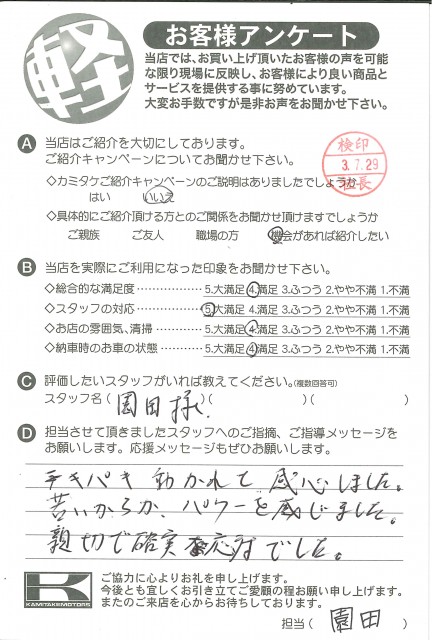 軽
お客様アンケート
当店では、お買い上げ頂いたお客様の声を可能
な限り現場に反映し、お客様により良い商品と
サービスを提供する事に努めています。
大変お手数ですが是非お声をお聞かせ下さい。
A 当店はご紹介を大切にしております。
ご紹介キャンペーンについてお聞かせ下さい。
検印
3.7.29
社長
◇カミタケご紹介キャンペーンのご説明はありましたでしょうか
はい いいえ
◇具体的にご紹介頂ける方とのご関係をお聞かせ頂けますでしょうか
ご親族 ご友人 職場の方 機会があれば紹介したい
B 当店を実際にご利用になった印象をお聞かせ下さい。
◇総合的な満足度 5.大満足 4.満足 3.ふつう 2.やや不満 1.不満
◇スタッフの対応 5.大満足 4.満足 3.ふつう 2.やや不満 1.不満
◇お店の雰囲気、清掃 5.大満足 4.満足 3.ふつう 2.やや不満 1.不満
◇納車時のお車の状態 5.大満足 4.満足 3.ふつう 2.やや不満 1.不満
C 評価したいスタッフがいれば教えてください。(複数回答可)
スタッフ名( 園田様. )( )( )
D 担当させて頂きましたスタッフへのご指摘、ご指導メッセージを
お願いします。応援メッセージもぜひお願いします。
テキパキ動かれて感心しました。
若いからか、パワーを感じました。
親切で確実な応対でした。
K
KAMITAKEMOTORS
ご協力に心よりお礼を申し上げます。
今後とも宜しくお引き立てご愛顧の程お願い申し上げます。
またのご来店を心からお待ちしております。
担当( 園田 )